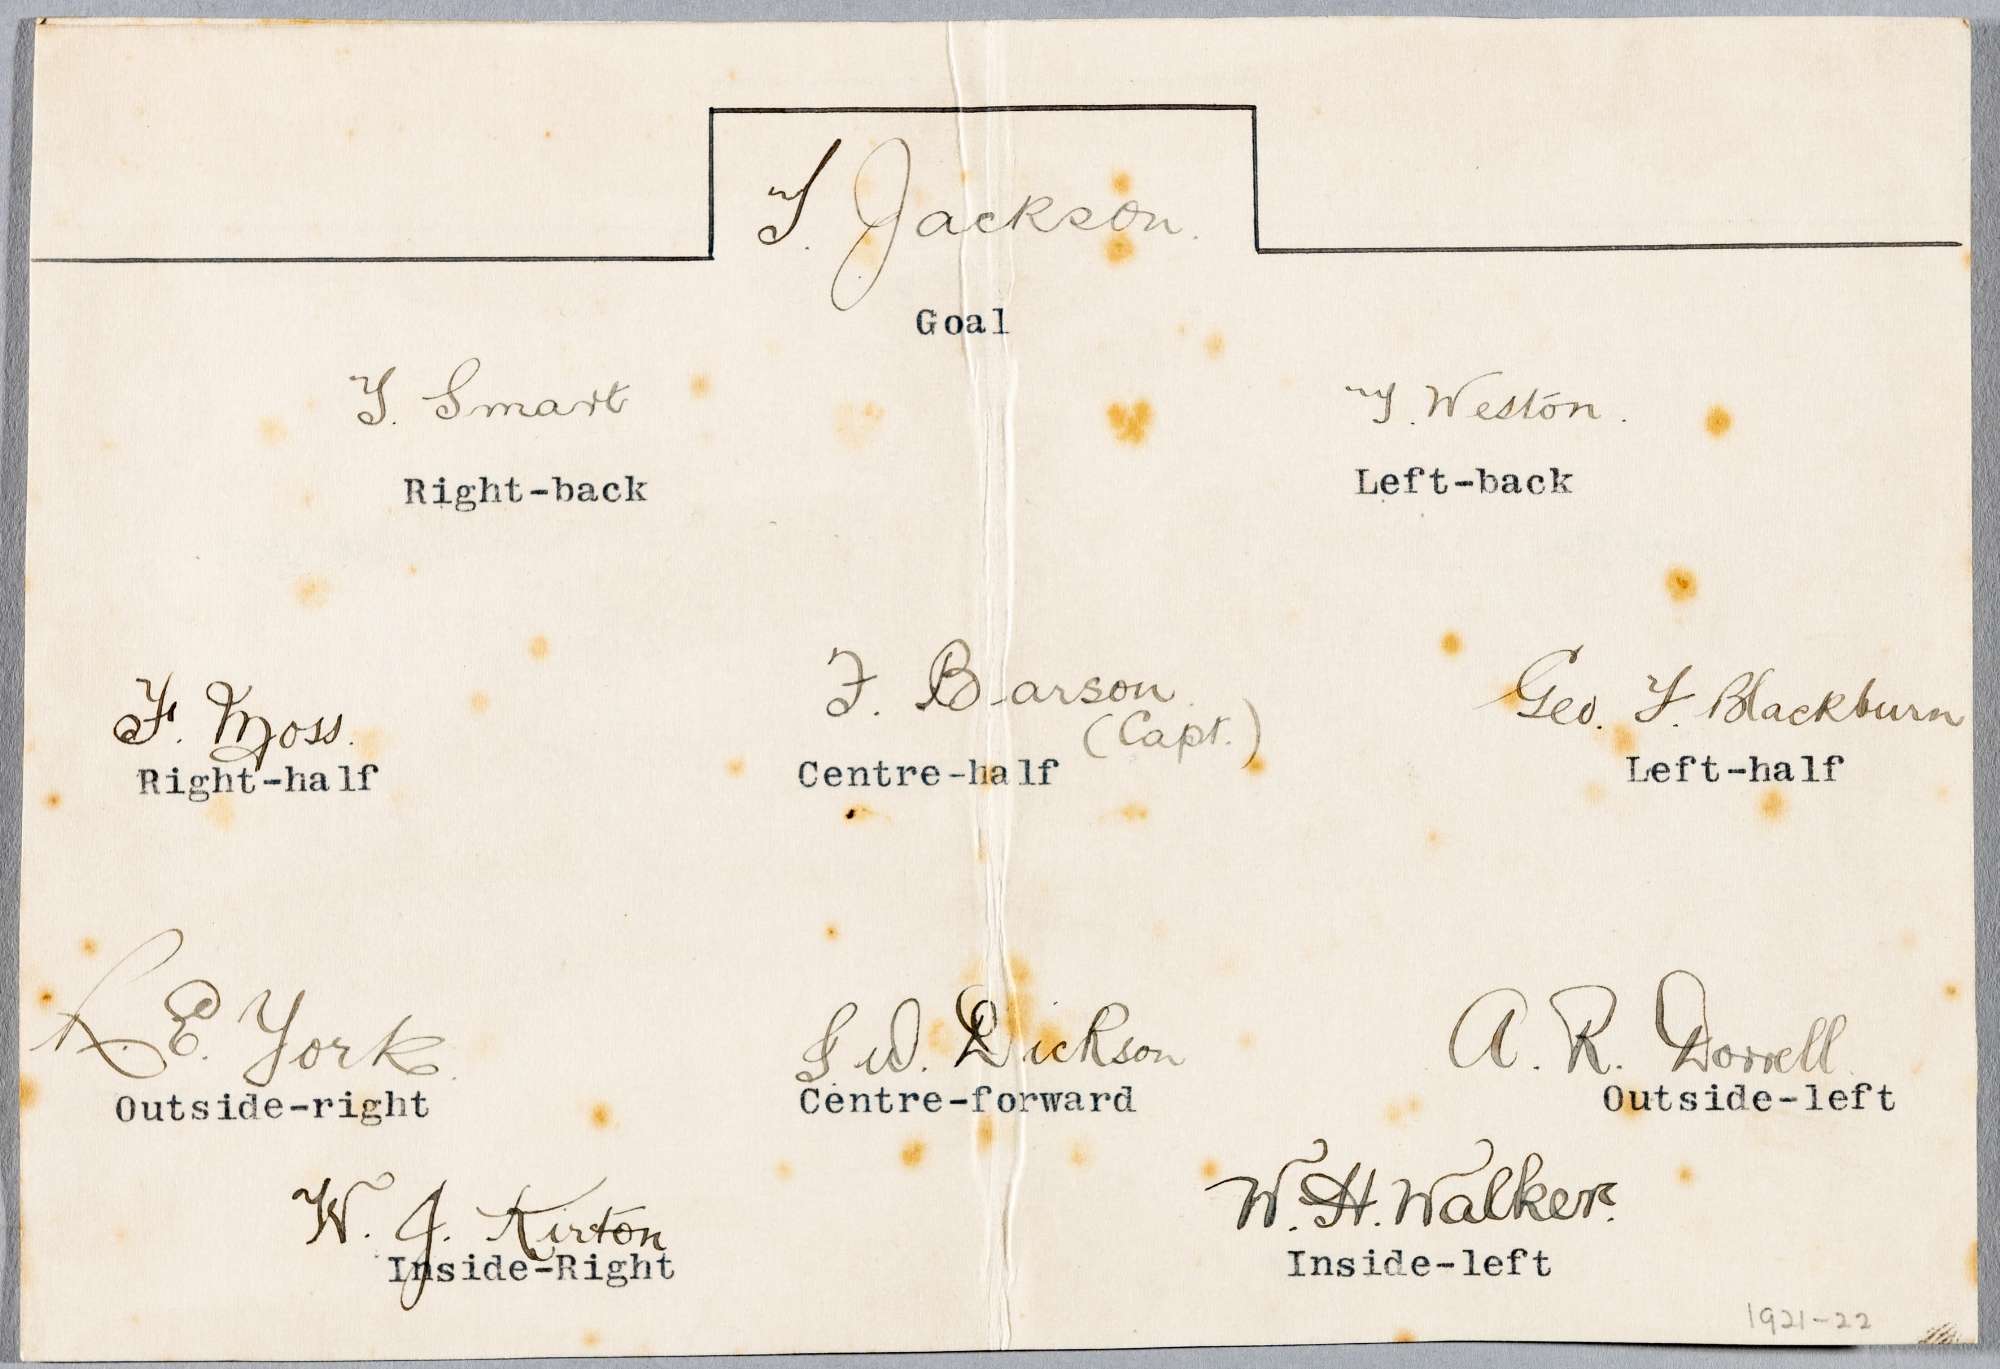 T. Jackson.
Goal
T. Smart
T. Weston.
Right-back
Left-back
F. Moss.
F. Barson
(Capt.)
Geo. F. Blackburn
Right-half
Centre-half
Left-half
R. E. York.
G W. Dickson
A. R. Dorrell.
Outside-right
Centre-forward
Outside-left
W. J. Kirton
W. H. Walker.
Inside-Right
Inside-left
1921-22